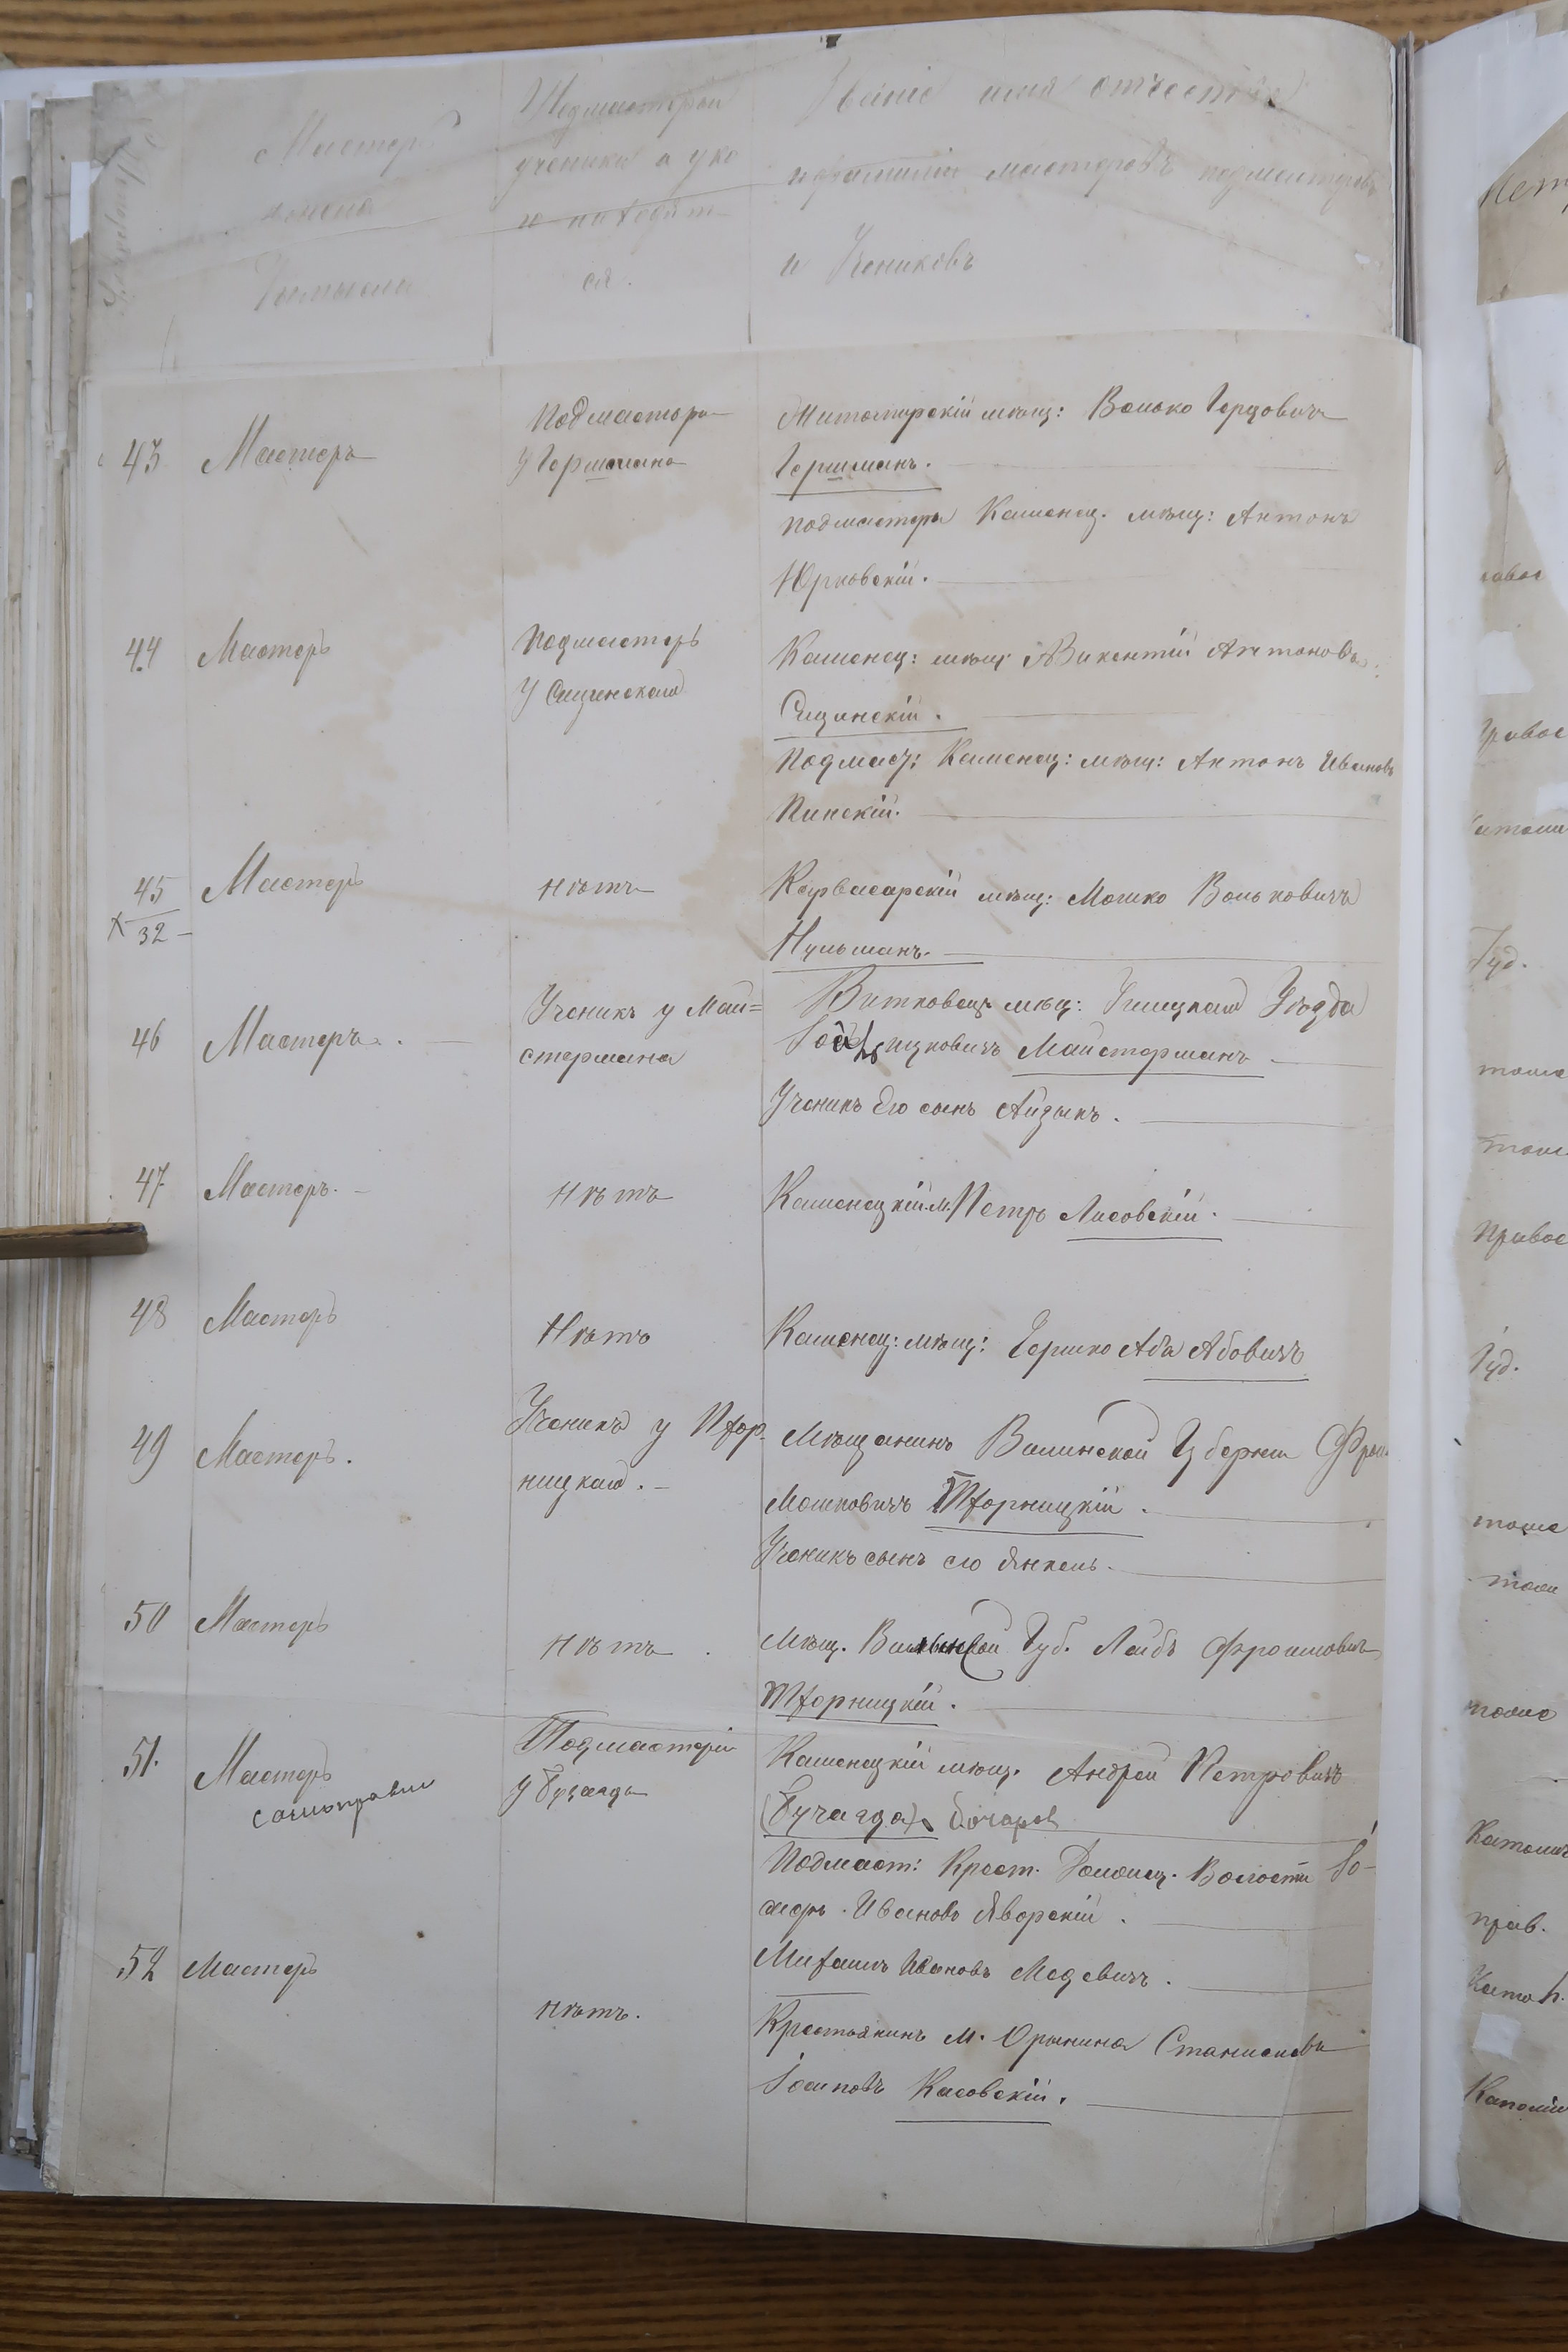 Мастеръ
Подмастеріи
ученики а у ко
го находят-
ся.
Званіе имя отчество
и фамиліи мастеровъ подмастеровъ
и Учениковъ
43 Мастеръ
Подмастера
у Гершмана
Житомирскій мѣщ: Волько Герцовичъ
Гершманъ.
подмастеръ Каменец. мѣщ: Антонъ
Юрковскій.
44 Мастеръ
Подмастеръ
у Сицинскаго
Каменец: мѣщ: Викентій Антоновъ
Сицинскій.
Подмаст: Каменец: мѣщ: Антонъ Ивановъ
Пинскій.
45 Мастеръ
х 32 -
нѣтъ
Карвасарскій мѣщ: Мошко Вольковичъ
Нульманъ.
46 Мастеръ.
Ученикъ у Май=
стермана
Витковец. мѣщ: Ушицкаго Уѣзда
Ицковичъ Майстерманъ
Ученикъ Его сынъ Айзыкъ.
47 Мастеръ.
Нѣтъ
Каменецкій м. Петръ Лисовскій.
48 Мастеръ
Нѣтъ
Каменец: мѣщ: Гершко Аба Абовичъ
49 Мастеръ.
Ученикъ у Тхор-
ницкаго.
Мѣщанинъ Волинской Губерніи Фроим
Мошковичъ Тхорницкій.
Ученикъ сынъ его Янкель.
50 Мастеръ
нѣтъ
Мѣщ. Волынской Губ. Лейбъ Фроимовичъ
Тхорницкій.
51. Мастеръ
Подмастеріи
у Бучагда
Каменецкій мѣщ. Андрей Петровичъ
(Бучагда) Бочаров
Подмаст: Крест. Волости
Ивановъ Яворскій.
52 Мастеръ
нѣтъ.
Михаилъ Ивановъ Медевичъ.
Крестьянинъ м. Орынина Станиславъ
Іосиповъ Касовскій.
прав.
Гуд.
тоже
тоже